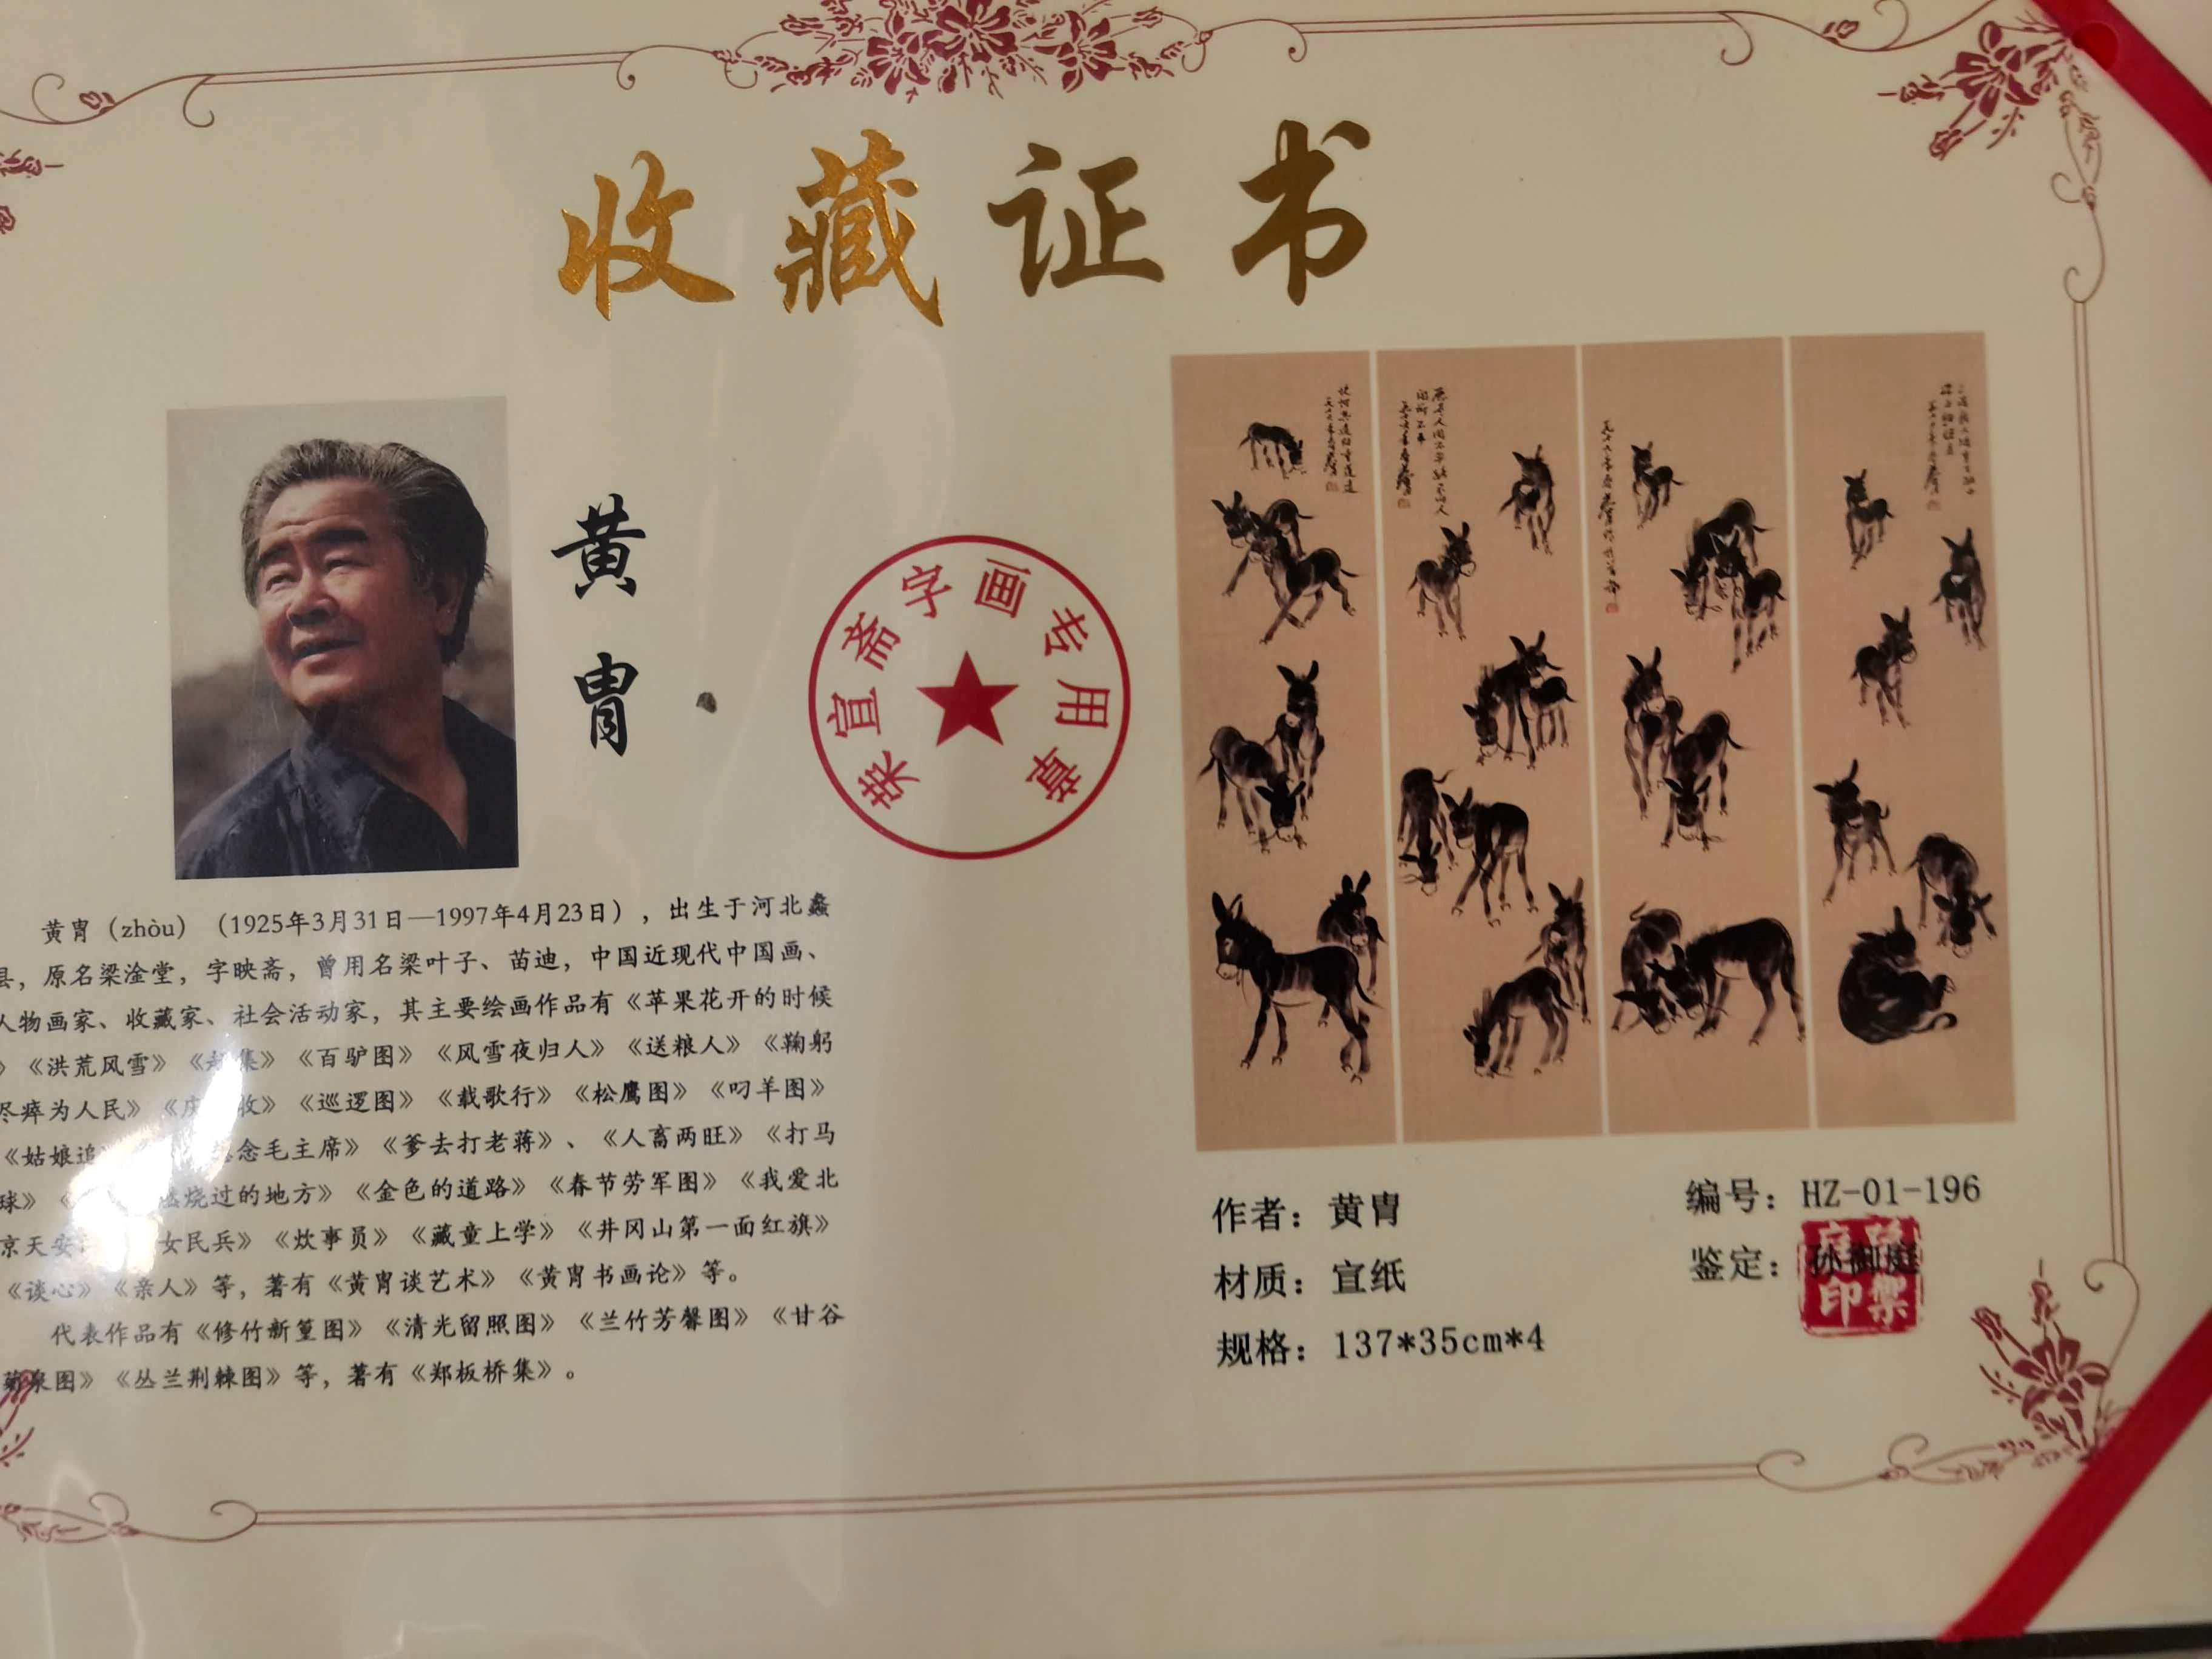 收藏证书
黄胄
荣宣斋字画专用章
黄胄（zhòu）（1925年3月31日—1997年4月23日），出生于河北蠡
县，原名梁淦堂，字映斋，曾用名梁叶子、苗迪，中国近现代中国画、
人物画家、收藏家、社会活动家，其主要绘画作品有《苹果花开的时候
》《洪荒风雪》《赶集》《百驴图》《风雪夜归人》《送粮人》《鞠躬
尽瘁为人民》《庆 收》《巡逻图》《载歌行》《松鹰图》《叼羊图》
《姑娘追 念毛主席》《爹去打老蒋》、《人畜两旺》《打马
球》《 燃烧过的地方》《金色的道路》《春节劳军图》《我爱北
京天安 女民兵》《炊事员》《藏童上学》《井冈山第一面红旗》
《谈心》《亲人》等，著有《黄胄谈艺术》《黄胄书画论》等。
代表作品有《修竹新篁图》《清光留照图》《兰竹芳馨图》《甘谷
菊泉图》《丛兰荆棘图》等，著有《郑板桥集》。
作者：黄胄
材质：宣纸
规格：137*35cm*4
编号：HZ-01-196
鉴定：孙御庭